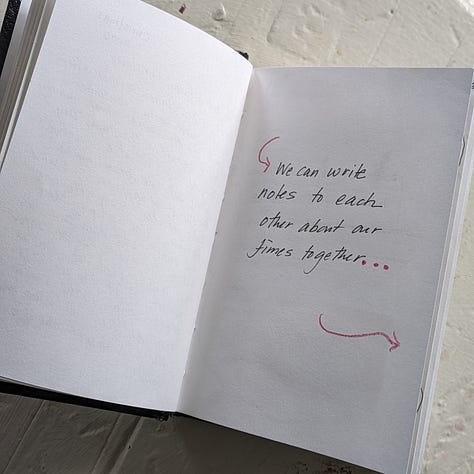 We can write
notes to each
other about our
times together...